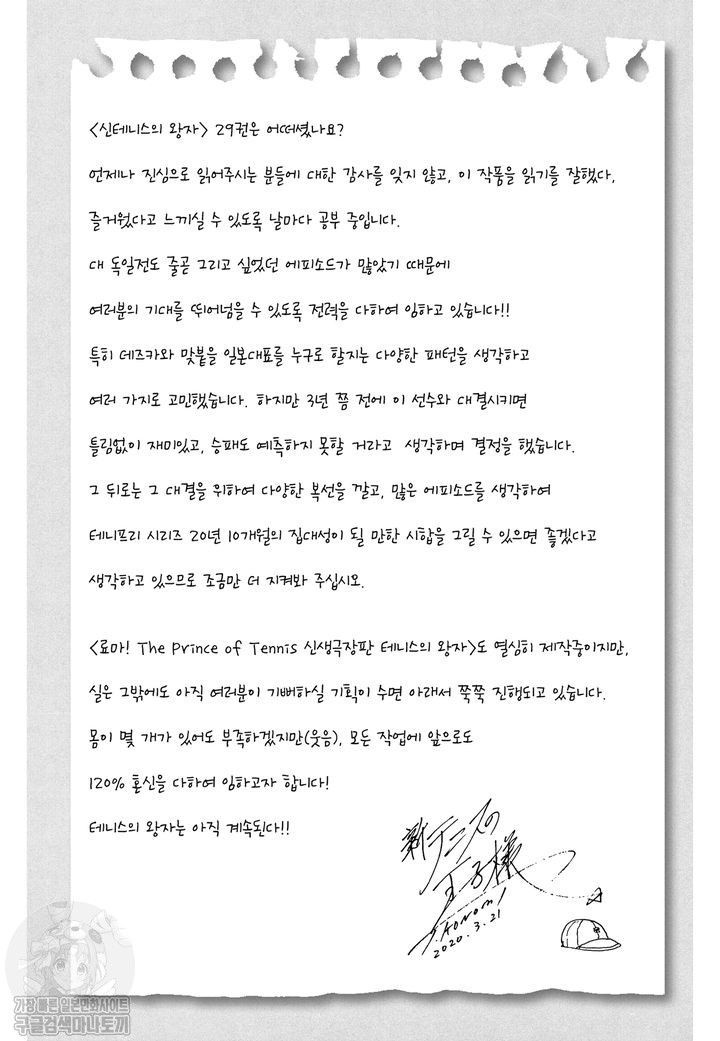 <신테니스의 왕자> 29권은 어떠셨나요?
언제나 진심으로 읽어주시는 분들에 대한 감사를 잊지 않고, 이 작품을 읽기를 잘했다,
즐거웠다고 느끼실 수 있도록 날마다 공부 중입니다.
대 독일전도 줄곧 그리고 싶었던 에피소드가 많았기 때문에
여러분의 기대를 뛰어넘을 수 있도록 전력을 다하여 임하고 있습니다!!
특히 데즈카와 맞붙을 일본대표를 누구로 할지는 다양한 패턴을 생각하고
여러 가지로 고민했습니다. 하지만 3년 쯤 전에 이 선수와 대결시키면
틀림없이 재미있고, 승패도 예측하지 못할 거라고 생각하며 결정을 했습니다.
그 뒤로는 그 대결을 위하여 다양한 복선을 깔고, 많은 에피소드를 생각하여
테니프리 시리즈 20년 10개월의 집대성이 될 만한 시합을 그릴 수 있으면 좋겠다고
생각하고 있으므로 조금만 더 지켜봐 주십시오.
<료마! The Prince of Tennis 신생극장판 테니스의 왕자>도 열심히 제작중이지만,
실은 그밖에도 아직 여러분이 기뻐하실 기획이 수면 아래서 쭉쭉 진행되고 있습니다.
몸이 몇 개가 있어도 부족하겠지만(웃음), 모든 작업에 앞으로도
120% 혼신을 다하여 임하고자 합니다!
테니스의 왕자는 아직 계속된다!!
新テニスの
王子様
2020.3.21
가장 빠른 일본만화사이트
구글검색마나토끼